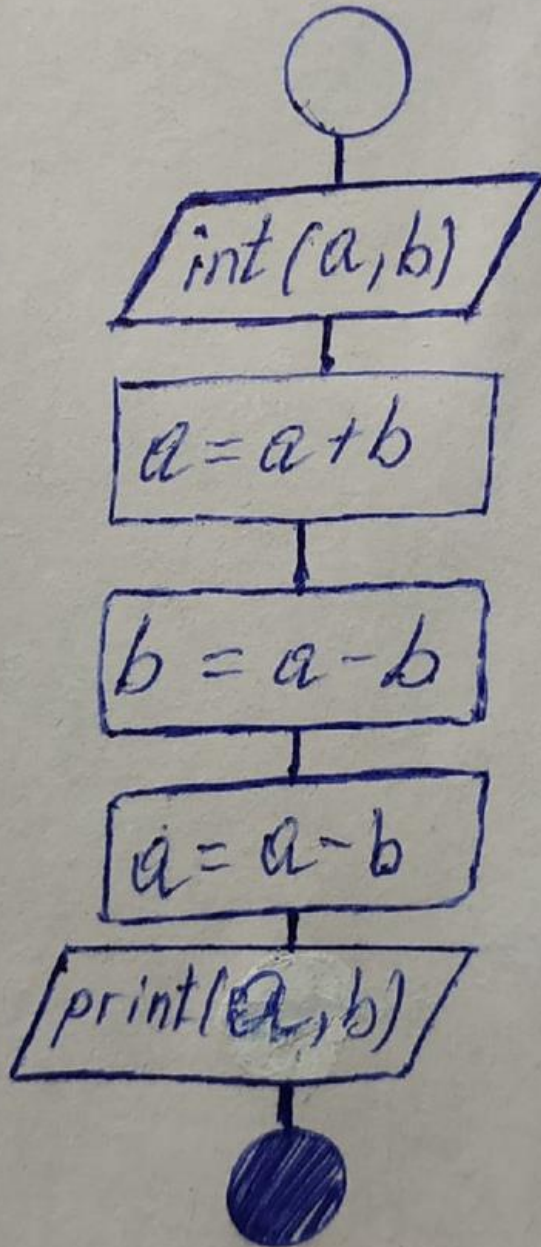 int(a,b)
a=a+b
b = a-b
a=a-b
print(a,b)